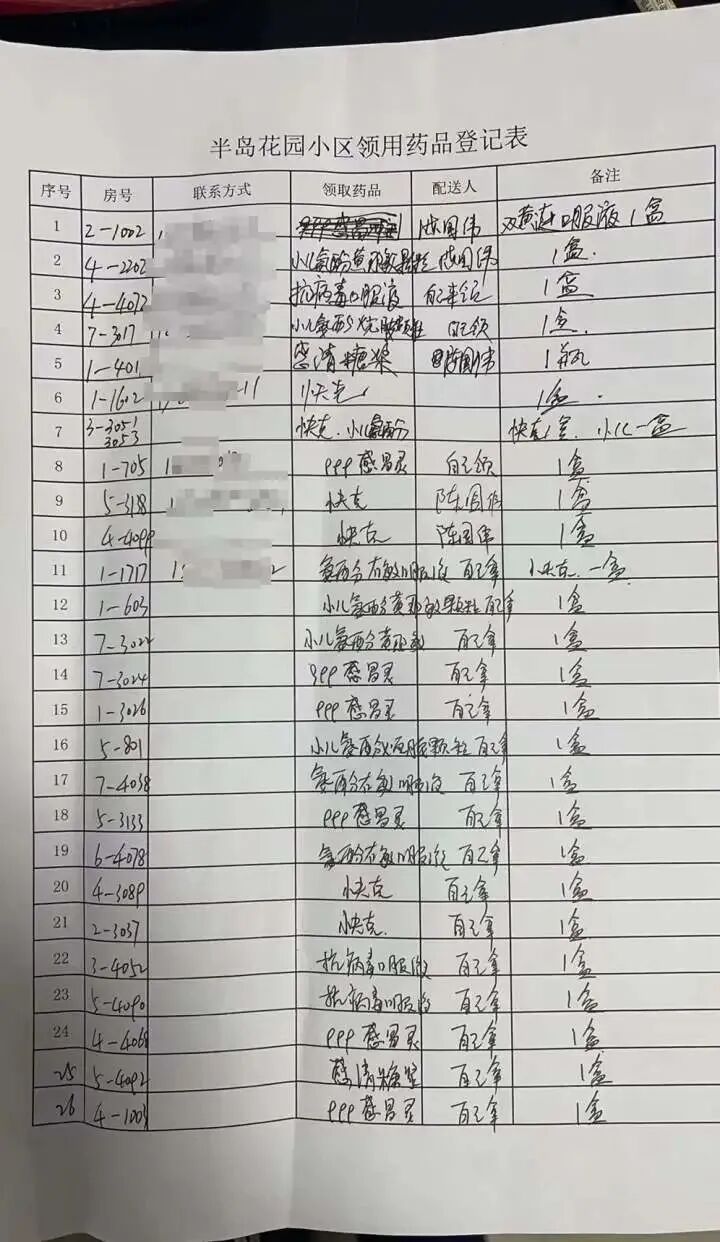 半岛花园小区领用药品登记表
序号 房号 联系方式 领取药品 配送人 备注
1 2-1002 陈国伟 双黄连口服液 1盒
2 4-2202 小儿氨酚黄那敏颗粒 陈国伟 1盒.
3 4-4072 抗病毒口服液 自己来领 1盒
4 7-3017 小儿氨酚 自领 1盒.
5 1-401 感清糖浆 陈国伟 1瓶
6 1-1602 快克 1盒.
7 3-3051 3053 快克.小儿氨酚 快克1盒、小儿一盒
8 1-705 999感冒灵 自己领 1盒
9 5-318 快克 陈国伟 1盒
10 4-4099 快克 陈国伟 1盒
11 1-1717 氨酚 口服液 自己拿 小快克.一盒
12 1-603 小儿氨酚黄那敏颗粒 自己拿 1盒
13 7-3024 小儿氨酚黄那敏 自己拿 1盒
14 7-3024 999感冒灵 自己拿 1盒
15 1-3026 999感冒灵 自己拿 1盒
16 5-801 小儿氨酚 颗粒 自己拿 1盒
17 7-4038 氨酚 口服液 自己拿 1盒
18 5-3133 999感冒灵 自己拿 1盒
19 6-4078 氨酚 口服液 自己拿 1盒
20 4-3089 快克 自己拿 1盒
21 2-3037 快克. 自己拿 1盒
22 3-4052 抗病毒口服液 自己拿 1盒
23 5-4090 抗病毒口服液 自己拿 1盒
24 4-4068 999感冒灵 自己拿 1盒
25 5-4092 感清糖浆 自己拿 1盒
26 4-1003 999感冒灵 自己拿 1盒